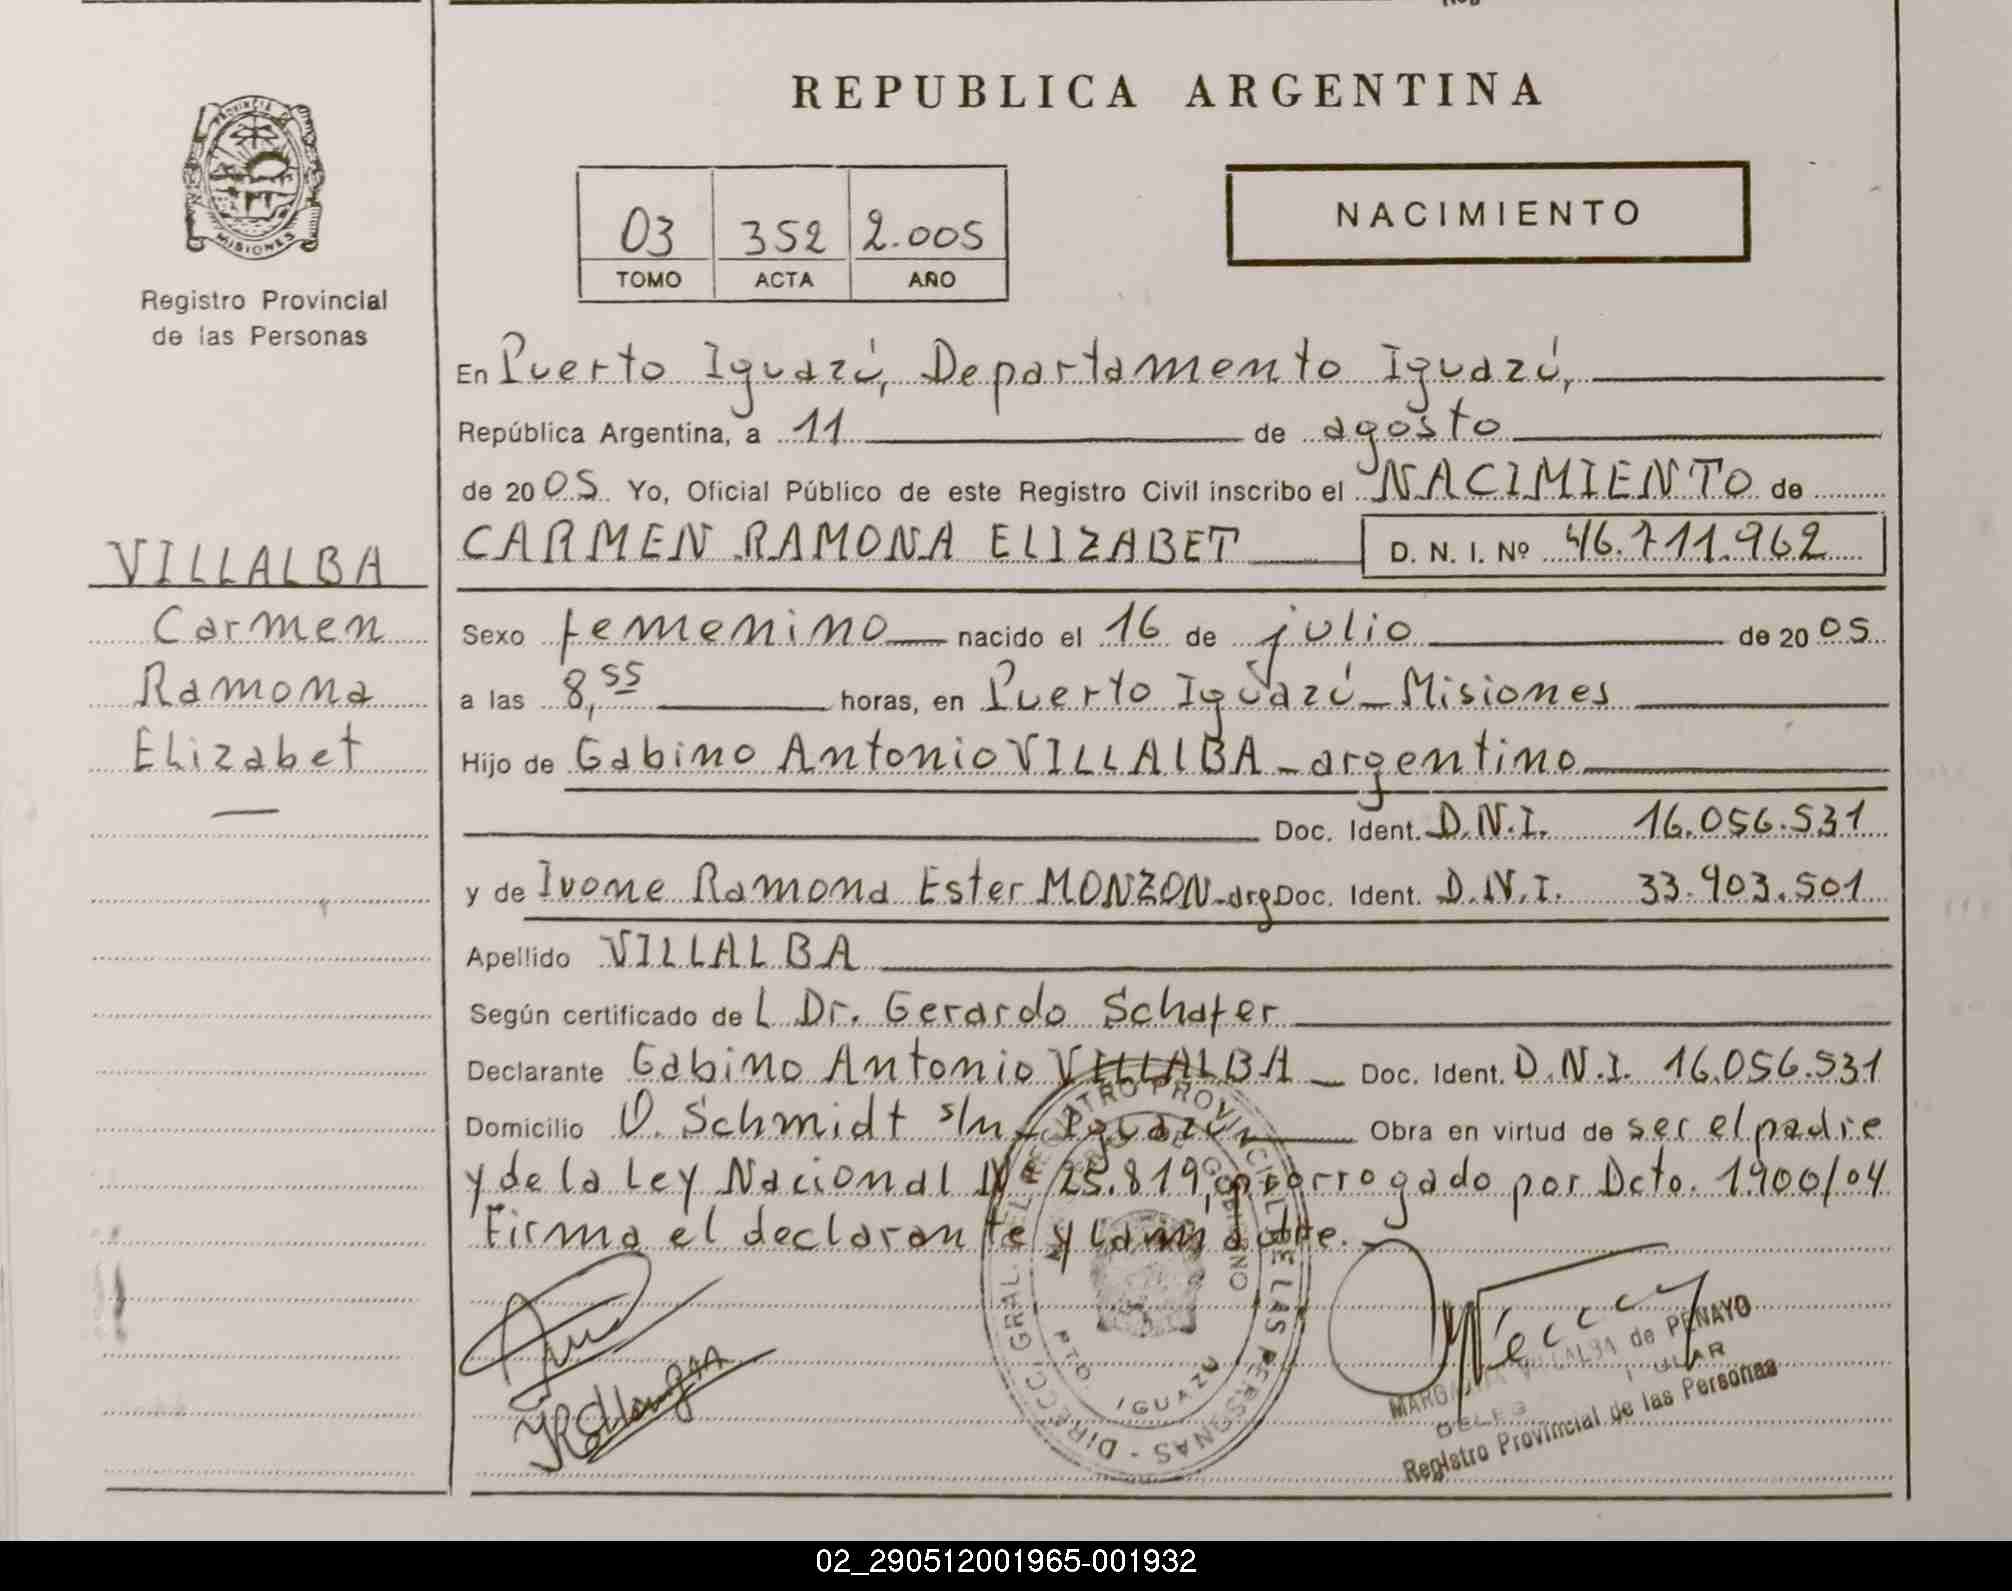 REPUBLICA ARGENTINA
PROVINCIA DE
MISIONES
Registro Provincial
de las Personas
03 352 2.005
TOMO ACTA AÑO
NACIMIENTO
En Puerto Iguazú, Departamento Iguazú,
República Argentina, a 11 de agosto
de 2005 Yo, Oficial Público de este Registro Civil inscribo el NACIMIENTO de
CARMEN RAMONA ELIZABET D. N. I. Nº 46.711.962
VILLALBA
Carmen
Ramona
Elizabet
Sexo femenino nacido el 16 de julio de 2005
a las 8,55 horas, en Puerto Iguazú - Misiones
Hijo de Gabino Antonio VILLALBA - argentino
Doc. Ident. D.N.I. 16.056.531
y de Ivone Ramona Ester MONZON - arg Doc. Ident. D.N.I. 33.903.501
Apellido VILLALBA
Según certificado de L Dr. Gerardo Schafer
Declarante Gabino Antonio VILLALBA - Doc. Ident. D.N.I. 16.056.531
Domicilio O. Schmidt s/n - Iguazú Obra en virtud de ser el padre
y de la Ley Nacional Nº 25.819, prorrogado por Dcto. 1.900/04
Firma el declarante y la madre.
DIRECC. GRAL. DEL REGISTRO PROVINCIAL DE LAS PERSONAS
DE GOBIERNO
PTO. IGUAZU
VILLALBA de PENAYO
Registro Provincial de las Personas
02_290512001965-001932